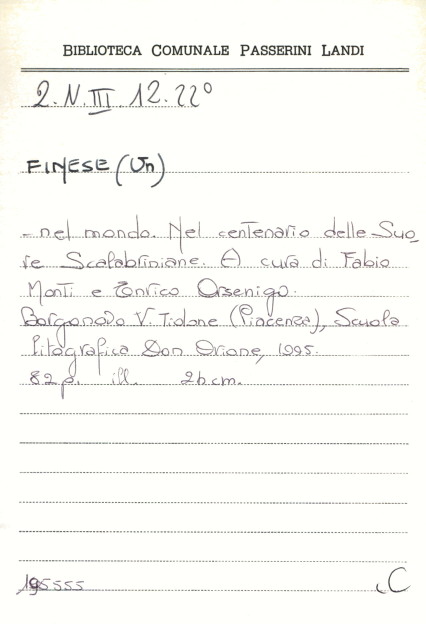 BIBLIOTECA COMUNALE PASSERINI LANDI
2.N.III.12.22°
FINESE (Un)
- nel mondo. Nel centenario delle Suo
re Scalabriniane. A cura di Fabio
Monti e Enrico Orsenigo.
Borgonovo V. Tidone (Piacenza), Scuola
litografica Don Orione, 1995.
82 p. ill. 26 cm.
195555 C